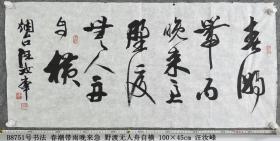 春潮
帶雨
晚来急
野渡
無人舟
自横
汪汝峰
B8751号书法 春潮带雨晚来急 野渡无人舟自横 100×45cm 汪汝峰